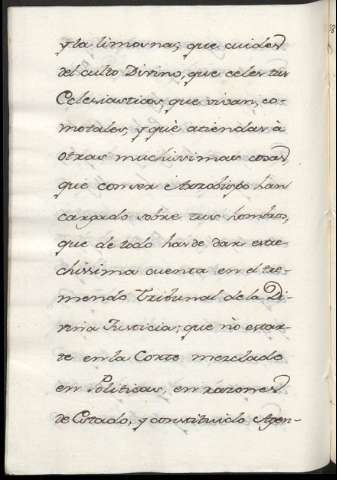 y la limosna; que cuides
del culto Divino, que celes tus
Eclesiasticos, que vivan, co-
mo tales, y què atiendas à
otras muchissimas cosas
que con ser Arzobispo han
cargado sobre tus hombros,
que de todo has de dar estre-
chissima cuenta en el tre-
mendo Tribunal de la Di-
vina Justicia; que nò estar-
te en la Corte mezclado
en Politicas, en razones
de Estado, y constituido Agen-